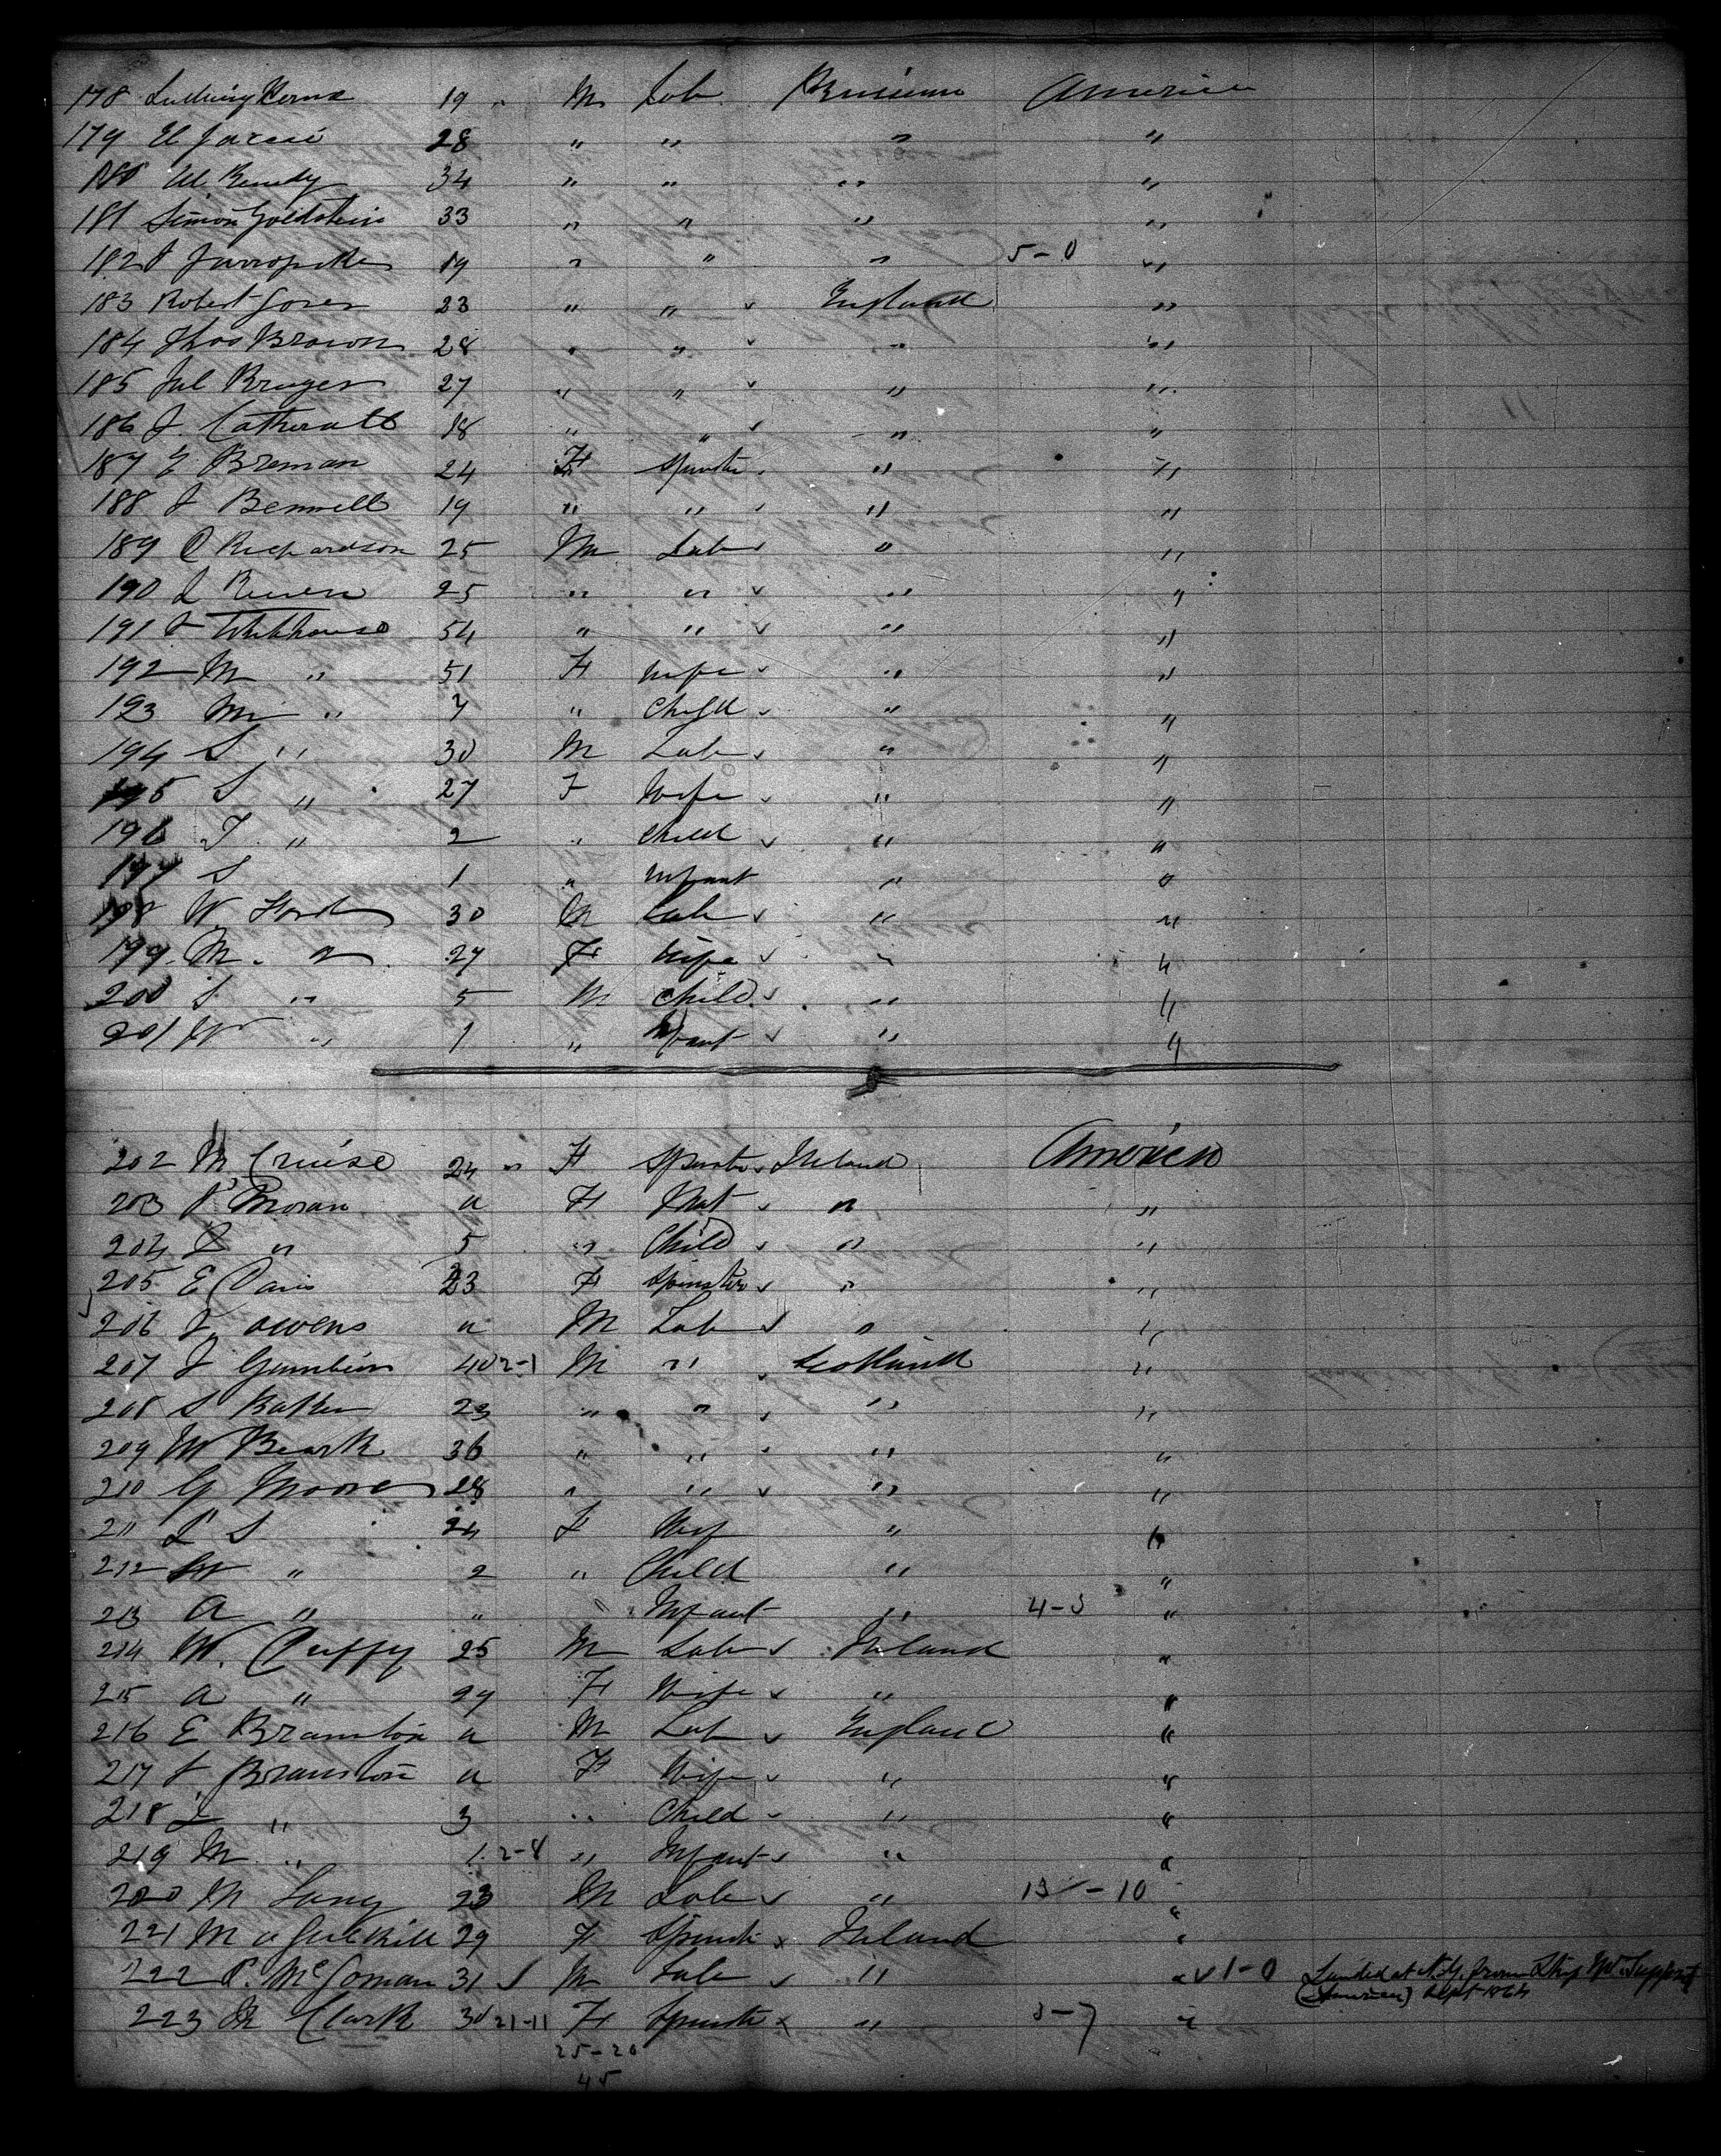 178 Ludwig 19 " M Lab Prussian America
179 28 " " " "
180 34 " " " "
181 Simon Goldstein 33 " " " "
182 J 19 " " " 5-0 "
183 Robert Jones 23 " " England "
184 Thos Brown 28 " " " "
185 Jul Kruger 27 " " " "
186 J. Catherall 18 " " " "
187 E Breman 24 F Spinster " "
188 J Bennett 19 " " " "
189 C Richardson 25 M Lab " "
190 J 25 " " " "
191 J Whitehouse 54 " " " "
192 M " 51 F Wife " "
193 M " 7 " Child " "
194 S " 30 M Lab " "
195 S " 27 F Wife " "
196 T " 2 " Child " "
197 S 1 " Infant " "
198 W Ford 30 M Lab " "
199 M " 27 F Wife " "
200 S " 5 M Child " "
201 W " 1 " Infant " "
202 M Cruise 24 " F Spinster Ireland America
203 P Moran a F Mat " "
204 " 5 " Child " "
205 E Davis 23 F Spinster " "
206 J Owens a M Lab " "
207 J 40 2-1 M " Scotland "
208 S 23 " " " "
209 W 36 " " " "
210 G Moore 28 " " " "
211 L S 24 F Wif " "
212 W " 2 " Child " "
213 A " " Infant " "
214 W. Duffy 25 M Lab Ireland "
215 a " 29 F Wife " "
216 E Bramston a M Lab England "
217 J Branston a F Wife " "
218 " 3 " Child " "
219 M " 1 2-8 " Infant " "
220 M Lang 23 M Lab " 13-10 "
221 M 29 F Spinst Ireland "
222 P. McGoman 31 M Lab " " 1-0 Landed at N.Y. from Ship
(American) Sept 1864
223 M Clark 30 21-11 F Spinst " 3-7 "
25-20
45